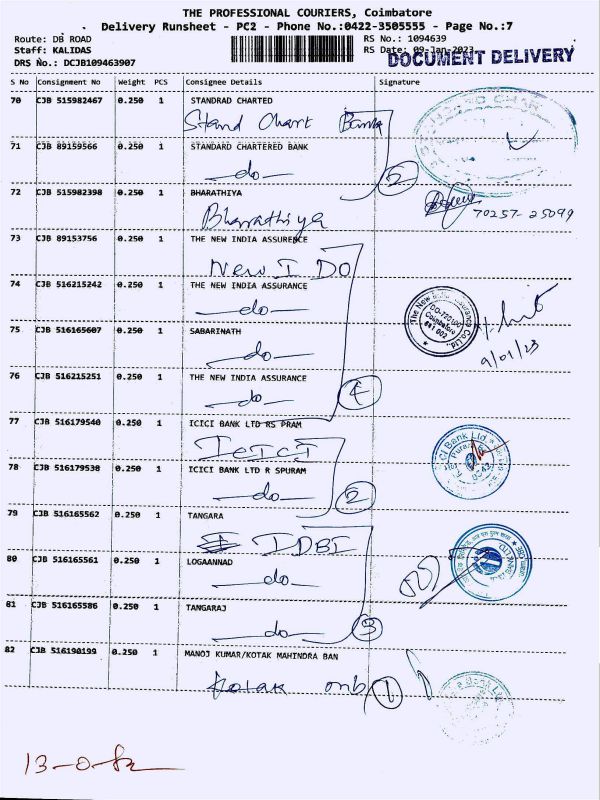 THE PROFESSIONAL COURIERS, Coimbatore
Delivery Runsheet - PC2 - Phone No.:0422-3505555 - Page No.:7
Route: DB ROAD
RS No.: 1094639
Staff: KALIDAS
RS Date: 09-Jan-2023
DOCUMENT DELIVERY
DRS No.: DCJB109463907
S No Consignment No Weight PCS Consignee Details Signature
70 CJB 515982467 0.250 1 STANDRAD CHARTED
Stand Chart Bank
71 CJB 89159566 0.250 1 STANDARD CHARTERED BANK
do
72 CJB 515982398 0.250 1 BHARATHIYA
Bharathiya
70257-25099
73 CJB 89153756 0.250 1 THE NEW INDIA ASSURENCE
New I DO
74 CJB 516215242 0.250 1 THE NEW INDIA ASSURANCE
do
The New India Assurance Co. Ltd.
Coimbatore
641 002
75 CJB 516165607 0.250 1 SABARINATH
do
9/01/23
76 CJB 516215251 0.250 1 THE NEW INDIA ASSURANCE
do 4
77 CJB 516179540 0.250 1 ICICI BANK LTD RS PRAM
Icici
ICICI Bank Ltd
78 CJB 516179538 0.250 1 ICICI BANK LTD R SPURAM
do 2
79 CJB 516165562 0.250 1 TANGARA
IDBI
80 CJB 516165561 0.250 1 LOGAANNAD
do
81 CJB 516165586 0.250 1 TANGARAJ
do 3
82 CJB 516190199 0.250 1 MANOJ KUMAR/KOTAK MAHINDRA BAN
Kotak 1